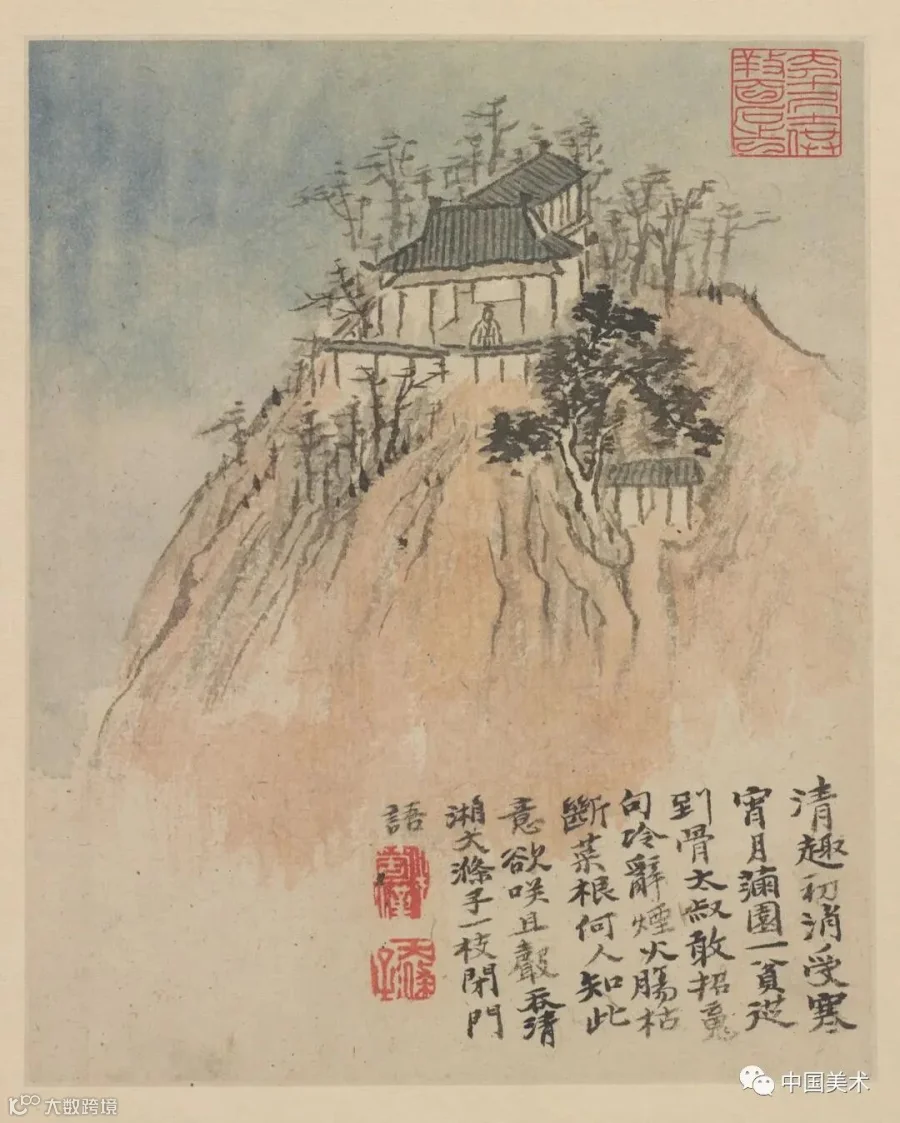 清趣初消受寒
宵月滿園一貧從
到骨太叔敢招魂
句冷辭煙火腸枯
斷菜根何人知此
意欲咲且聲吞清
湘大滌子一枝閉門
語
中国美术
大数跨境